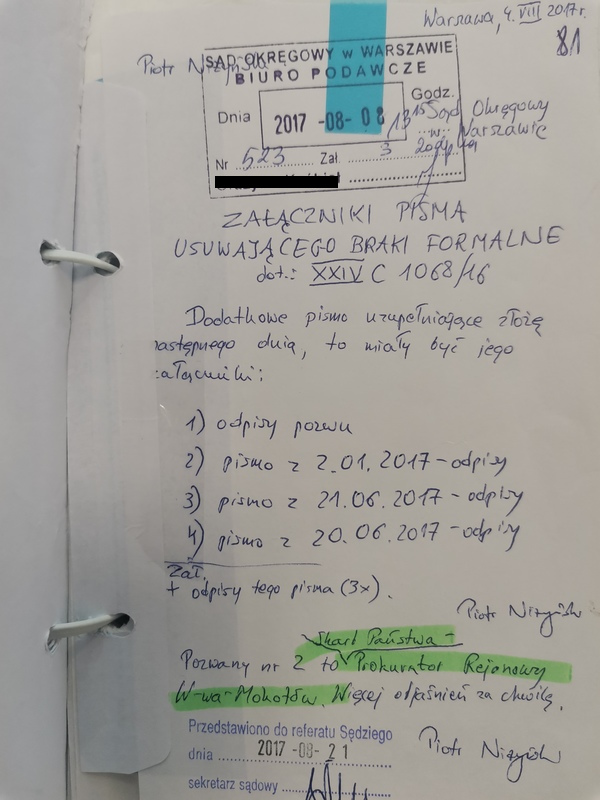 Warszawa, 4. VIII 2017r.
81
Piotr Niżyński
SĄD OKRĘGOWY w WARSZAWIE
BIURO PODAWCZE
Godz.
Dnia 2017 -08- 08 13 15
Sąd Okręgowy
w Warszawie
Nr 523 Zał. 3
ZAŁĄCZNIKI PISMA
USUWAJĄCEGO BRAKI FORMALNE
dot.: XXIV C 1068/16
Dodatkowe pismo uzupełniające złożę
następnego dnia, to miały być jego
załączniki:
1) odpisy pozwu
2) pismo z 2.01.2017 - odpisy
3) pismo z 21.06.2017 - odpisy
4) pismo z 20.06.2017 - odpisy
Zał.
+ odpisy tego pisma (3x).
Piotr Niżyński
Skarb Państwa -
Pozwany nr 2 to Prokurator Rejonowy
W-wa-Mokotów. Więcej objaśnień za chwilę.
Piotr Niżyński
Przedstawiono do referatu Sędziego
dnia 2017 -08- 21
sekretarz sądowy